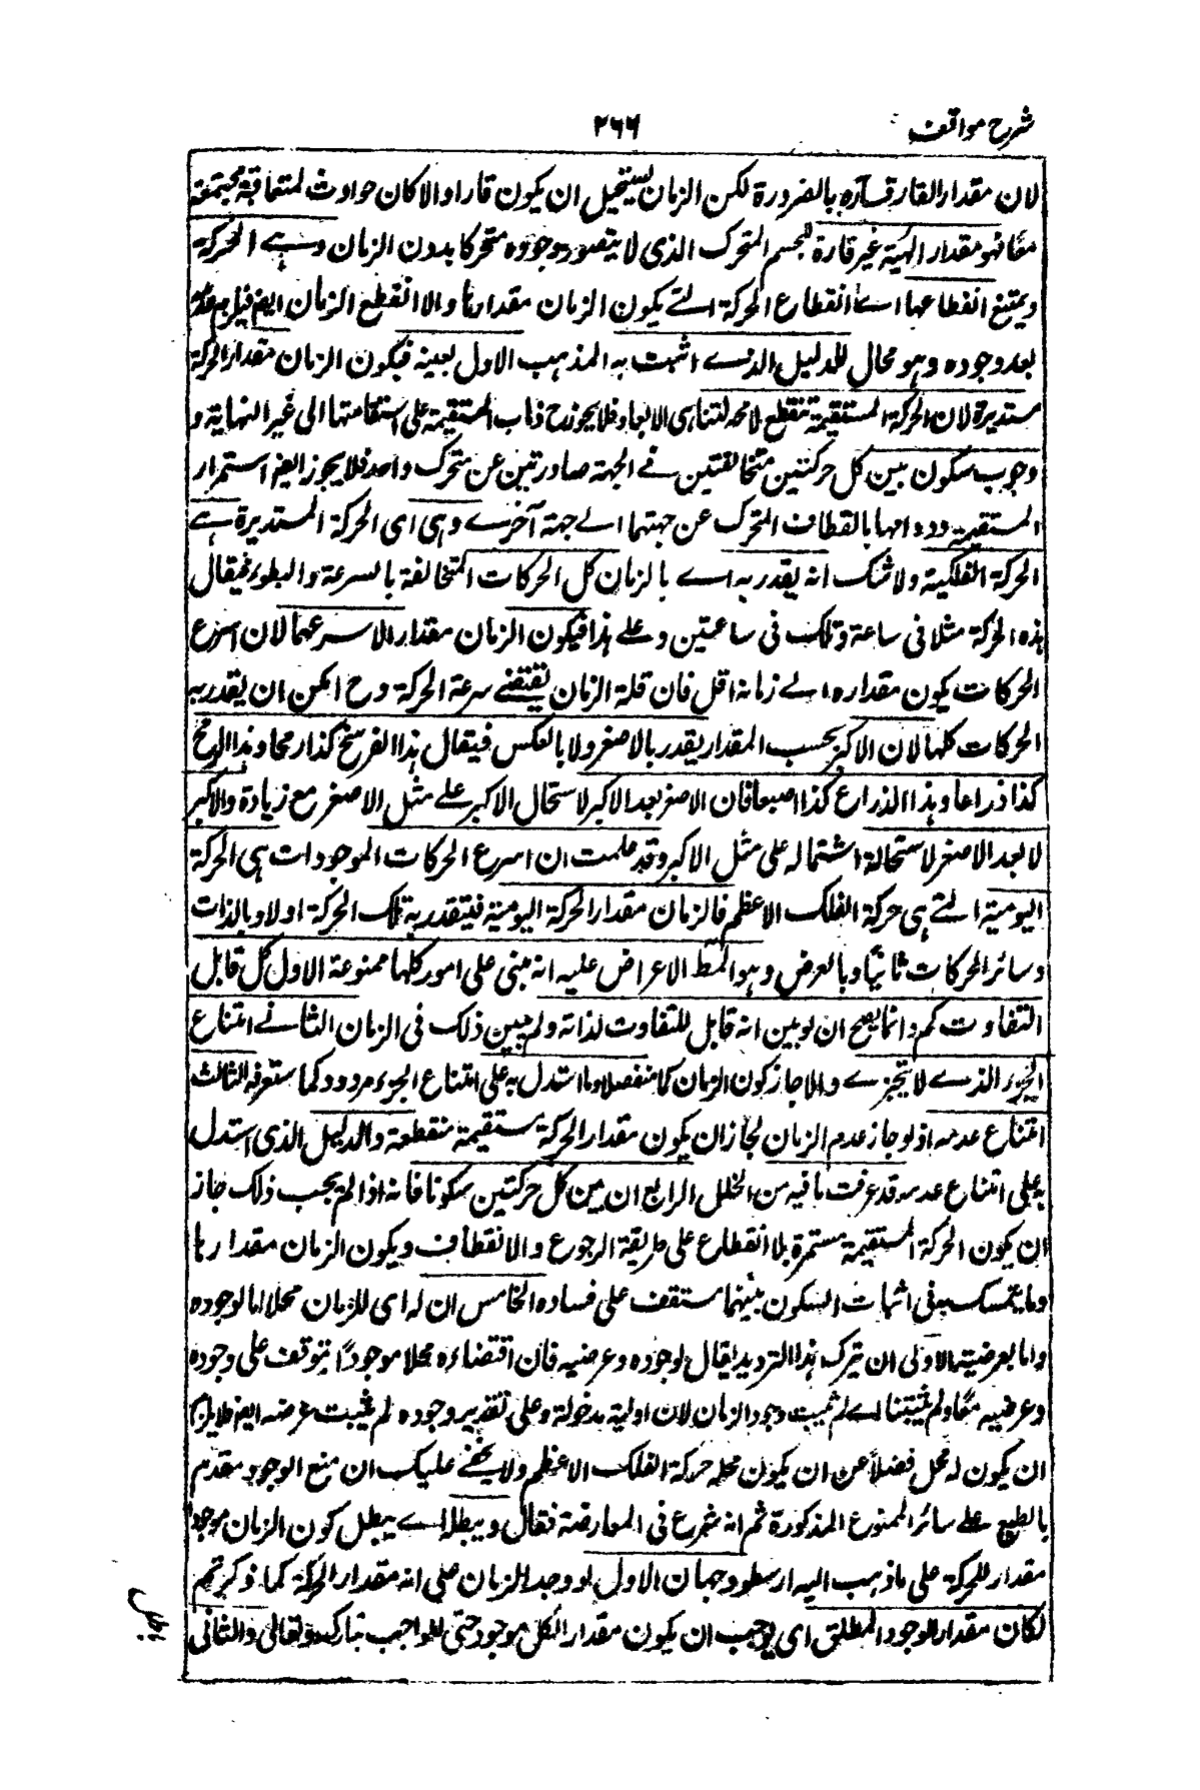 شرح مواقف
۲۶۶
لان مقدار القار قار بالضرورة لكن الزمان يستحيل ان يكون قارا والا كان حوادث المتعاقبة مجتمعة
معا فهو مقدار لهيئة غير قارة للجسم المتحرك الذى لا يتصور وجوده متحركا بدون الزمان وهى الحركة
ويمتنع انقطاعها اى انقطاع الحركة التى يكون الزمان مقدارها والا انقطع الزمان ايضا فيلزم عدمه
بعد وجوده وهو محال للدليل الذى اثبت به المذهب الاول بعينه فيكون الزمان مقدار الحركة
مستديرة لان الحركة المستقيمة تنقطع لا محالة لتناهى الابعاد فلا يجوز ح ذهاب المستقيمة على استقامتها الى غير النهاية و
وجوب سكون بين كل حركتين متخالفتين فى الجهة صادرتين عن متحرك واحد فلا يجوز ايضا استمرار
المستقيمة ودوامها بانعطاف المتحرك عن جهتها الى جهة آخرى وهى اى الحركة المستديرة هى
الحركة الفلكية ولا شك انه يقدر به اى بالزمان كل الحركات المتخالفة بالسرعة والبطوء فيقال
هذه الحركة مثلا فى ساعة وتلك فى ساعتين وعلى هذا فيكون الزمان مقدارا لاسرعها لان اسرع
الحركات يكون مقداره اى زمانه اقل فان قلة الزمان يقتضى سرعة الحركة وح امكن ان يقدر به
الحركات كلها لان الاكبر بحسب المقدار يقدر بالاصغر ولا بالعكس فيقال هذا الفرسخ كذا رمحا وهذا الرمح
كذا ذراعا وهذا الذراع كذا اصبعا فان الاصغر يعد الاكبر لاشتمال الاكبر على مثل الاصغر مع زيادة والاكبر
لا يعد الاصغر لاستحالة اشتماله على مثل الاكبر وقد علمت ان اسرع الحركات الموجودات هى الحركة
اليومية التى هى حركة الفلك الاعظم فالزمان مقدار الحركة اليومية فيتقدر به تلك الحركة اولا وبالذات
وسائر الحركات ثانيا وبالعرض وهو المط الاعراض عليه انه مبنى على امور كلها ممنوعة الاول كل قابل
التفاوت كم وانما يصح ان لو بين انه قابل للتفاوت لذاته ولم يبين ذلك فى الزمان الثانى امتناع
الجزء الذى لا يتجزى والا جاز كون الزمان كما منفصلا وما استدل به على امتناع الجزء مردود كما ستعرفه الثالث
امتناع عدمه اذ لو جاز عدم الزمان لجاز ان يكون مقدار الحركة مستقيمة منقطعة والدليل الذى استدل
به على امتناع عدمه قد عرفت ما فيه من الخلل الرابع ان بين كل حركتين سكونا فانه اذا لم يجب ذلك جاز
ان يكون الحركة المستقيمة مستمرة بلا انقطاع على طريقة الرجوع والانعطاف ويكون الزمان مقدارها
وما يتمسك به فى اثبات السكون بينهما ستقف على فساده الخامس ان له اى للزمان محلا اما لوجوده
واما بعرضيته الاولى ان يترك هذا الترديد يقال لوجوده وعرضيه فان اقتضاءه محلا موجودا يتوقف على وجوده
وعرضيه معا ولم يثبتنا اى لم يثبت وجود الزمان لان اولية مدخولة وعلى تقدير وجوده لم يثبت عرضه ايضا فلا يلزم
ان يكون له محل فضلا عن ان يكون محله حركة الفلك الاعظم ولا يخفى عليك ان منع الوجود مقدم
بالطبع على سائر الممنوع المذكورة ثم انه شرع فى المعارضة فقال ويبطله اى يبطل كون الزمان موجودا
مقدار للحركة على ما ذهب اليه ارسطو وجهان الاول لو وجد الزمان على انه مقدار الحركة كما ذكرتم
لكان مقدار الوجود المطلق اى يوجب ان يكون مقدار الكل موجود حتى للواجب تبارك وتعالى والثانى